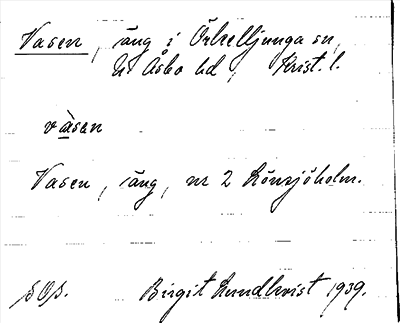 Vasen, äng i Örkelljunga sn,
N. Åsbo hd, Krist. l.
vàsan
Vasen, äng, nr 2 Lönsjöholm.
SOS. Birgit Lundkvist 1939.